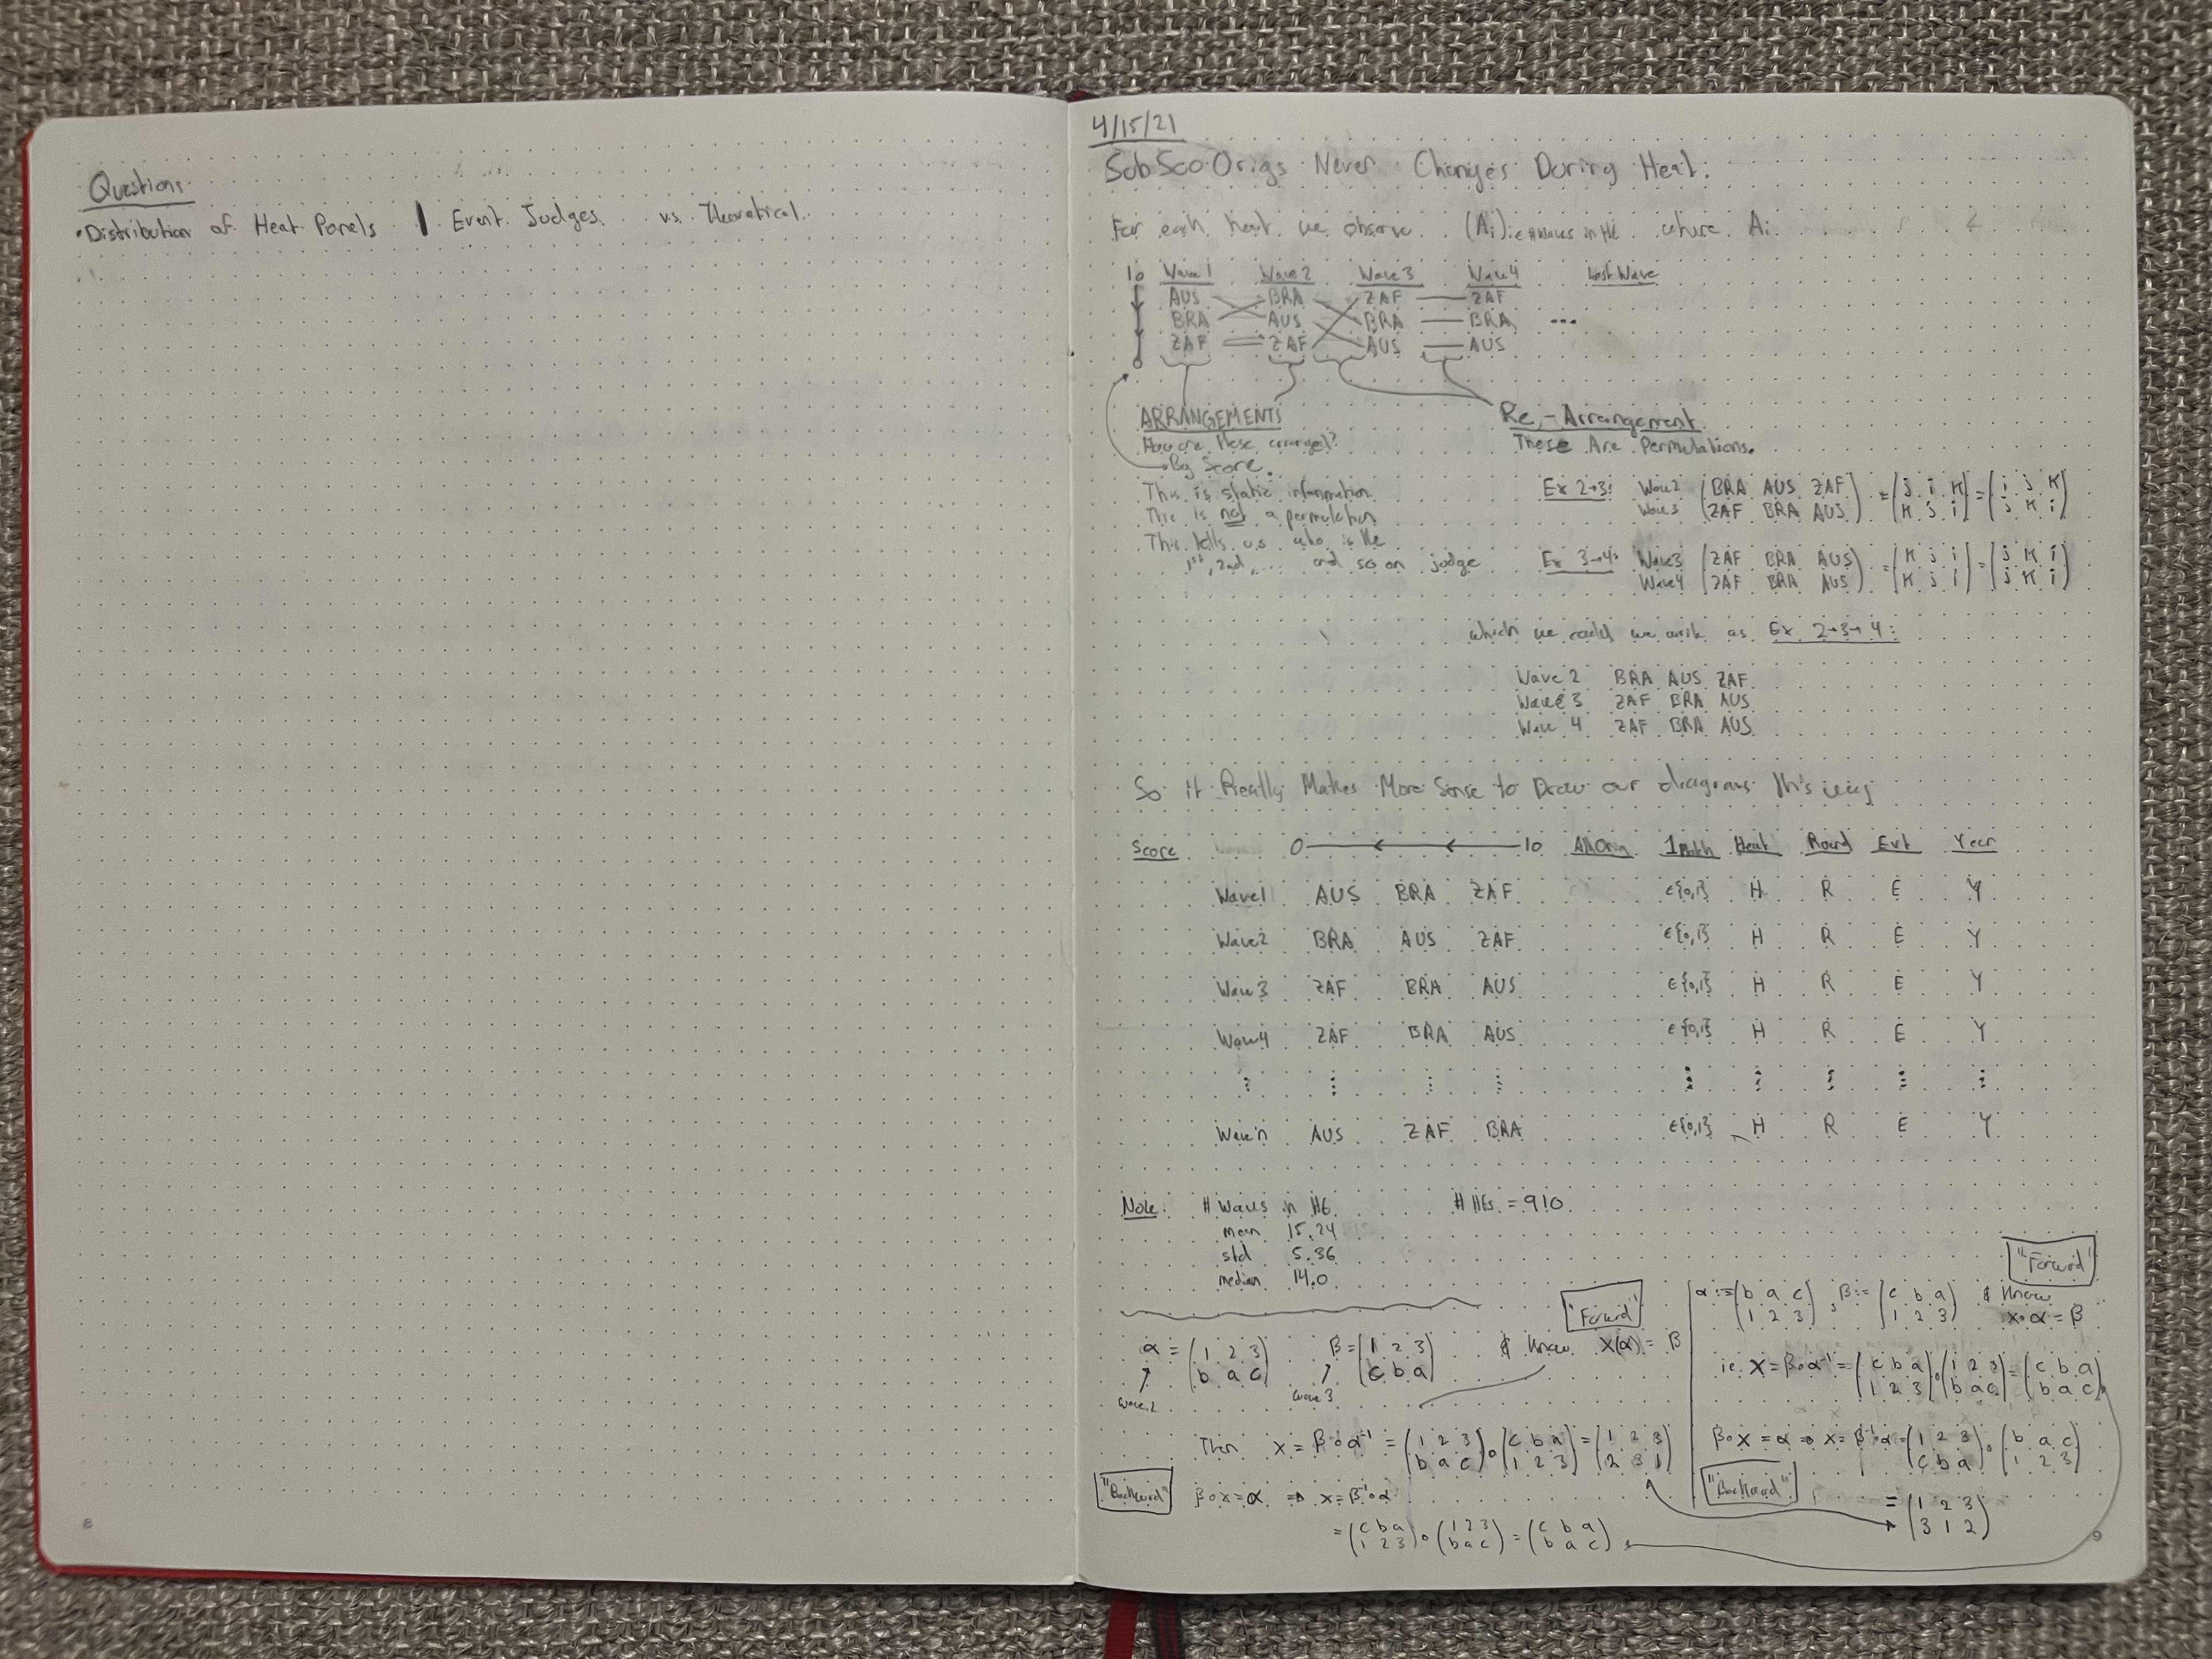 Questions:
• Distribution of Heat Panels | Event Judges vs. Theoretical.
8
4/15/21
SubScoOrigs Never Changes During Heat.
For each heat we observe (Ai)i∈#Waves in Ht where Ai
Wave 1 Wave 2 Wave 3 Wave 4 Last Wave
10 AUS BRA ZAF ZAF
BRA AUS BRA BRA ...
0 ZAF ZAF AUS AUS
ARRANGEMENTS
How are these arranged?
By Score.
This is static information
This is not a permutation
This tells us who is the
1st, 2nd, ... and so on judge
Re-Arrangement
These Are Permutations.
Ex 2→3: Wave2 (BRA AUS ZAF) = (j i k) = (i j k)
Wave3 (ZAF BRA AUS) (k j i) (j k i)
Ex 3→4: Wave3 (ZAF BRA AUS) = (k j i) = (j k i)
Wave4 (ZAF BRA AUS) (k j i) (j k i)
which we could write as Ex 2→3→4:
Wave 2 BRA AUS ZAF
Wave 3 ZAF BRA AUS
Wave 4 ZAF BRA AUS
So it Really Makes More Sense to Draw our diagrams this way
Score 0 10 Heat Round Evt Year
Wave1 AUS BRA ZAF ∈{0,1} H R E Y
Wave2 BRA AUS ZAF ∈{0,1} H R E Y
Wave3 ZAF BRA AUS ∈{0,1} H R E Y
Wave4 ZAF BRA AUS ∈{0,1} H R E Y
⋮ ⋮ ⋮ ⋮ ⋮ ⋮ ⋮ ⋮
Wave n AUS ZAF BRA ∈{0,1} H R E Y
Note: # Waves in Ht # Hts = 910
mean 15.24
std 5.36
median 14.0
"Forward"
α = (1 2 3) β = (1 2 3) & know x(α) = β
(b a c) (c b a)
wave 2 wave 3
Then x = β∘α⁻¹ = (1 2 3)∘(c b a) = (1 2 3)
(b a c) (1 2 3) (2 3 1)
"Backward" β∘x=α ⇒ x=β⁻¹∘α
= (c b a)∘(1 2 3) = (c b a)
(1 2 3) (b a c) (b a c)
"Forward"
α:=(b a c), β:=(c b a) & know
(1 2 3) (1 2 3) x∘α=β
ie. x=β∘α⁻¹=(c b a)∘(1 2 3)=(c b a)
(1 2 3) (b a c) (b a c)
β∘x=α ⇒ x=β⁻¹∘α=(1 2 3)∘(b a c)
(c b a) (1 2 3)
"Backward"
= (1 2 3)
(3 1 2)
9